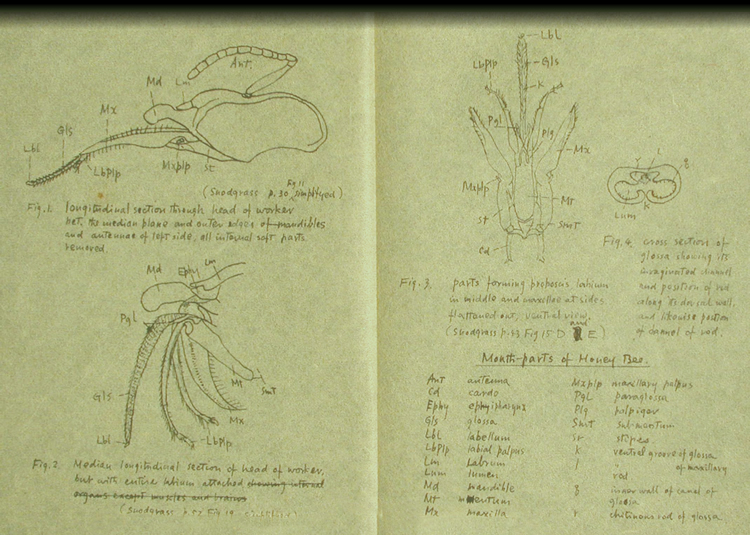 Ant.
Lm
Md
Mx
Gls
Lbl
LbPlp
Mxplp
St
Fig 11
(Snodgrass p. 30 simplified)
Fig. 1. longitudinal section through head of worker
net, the median plane and outer edges of mandibles
and antennae of left side, all internal soft parts
removed.
Md
Ephy
Lm
Pgl
Gls
Lbl
Mt
Smt
Mx
LbPlp
Fig. 2. Median longitudinal section of head of worker,
but with entire labium attached showing internal
organs except muscles and brains
(Snodgrass p. Fig 19
Lbl
Gls
LbPlp
k
Pgl
Plg
Mx
Mxplp
Mt
St
Smt
Cd
Fig. 3. parts forming proboscis labium
in middle and maxillae at sides
flattened out, ventral view.
and
(Snodgrass p. 43 Fig 15 D E)
r
l
q
k
Lum
Fig. 4. cross section of
glossa showing its
invaginated channel
and position of rod
along its dorsal wall,
and likewise position
of cannel of rod.
Month-parts of Honey Bee.
Ant antenna
Cd cardo
Ephy ephypharynx
Gls glossa
Lbl labellum
LbPlp labial palpus
Lm Labrum
Lum lumen
Md mandible
Mt mentum
Mx maxilla
Mxplp maxillary palpus
Pgl paraglossa
Plg palpiger
Smt submentum
St stipes
k ventral groove of glossa
l " of maxillary
rod
q inner wall of canal of
glossa
r chitinous rod of glossa